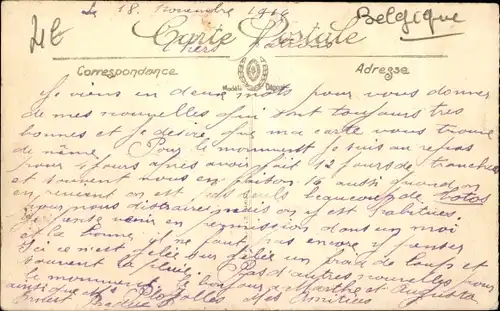 Le 18 Novembre 1916
Belgique
Carte Postale
Chers
Correspondance
Adresse
Modèle Déposé
Je viens en deux mots pour vous donner
de mes nouvelles qui sont toujours très
bonnes et je désire que ma carte vous trouve
de même Pour le moment je suis au repos
pour 4 jours après avoir fait 12 jours de tranchées
et souvent nous en faison 16 aussi quand on
en revient on est beaucoup de
pour nous distraire mais on y est habitués.
Je pense venir en permission dans un mois
et la bonne il ne faut pas encore y penser
Ici ce n'est gelée sur gelée un grand de coup et
souvent la pluie. Pas d'autres nouvelles pour
le moment le bonjour a Marthe et Augusta
ainsi que Mes Amitiées
Ernest